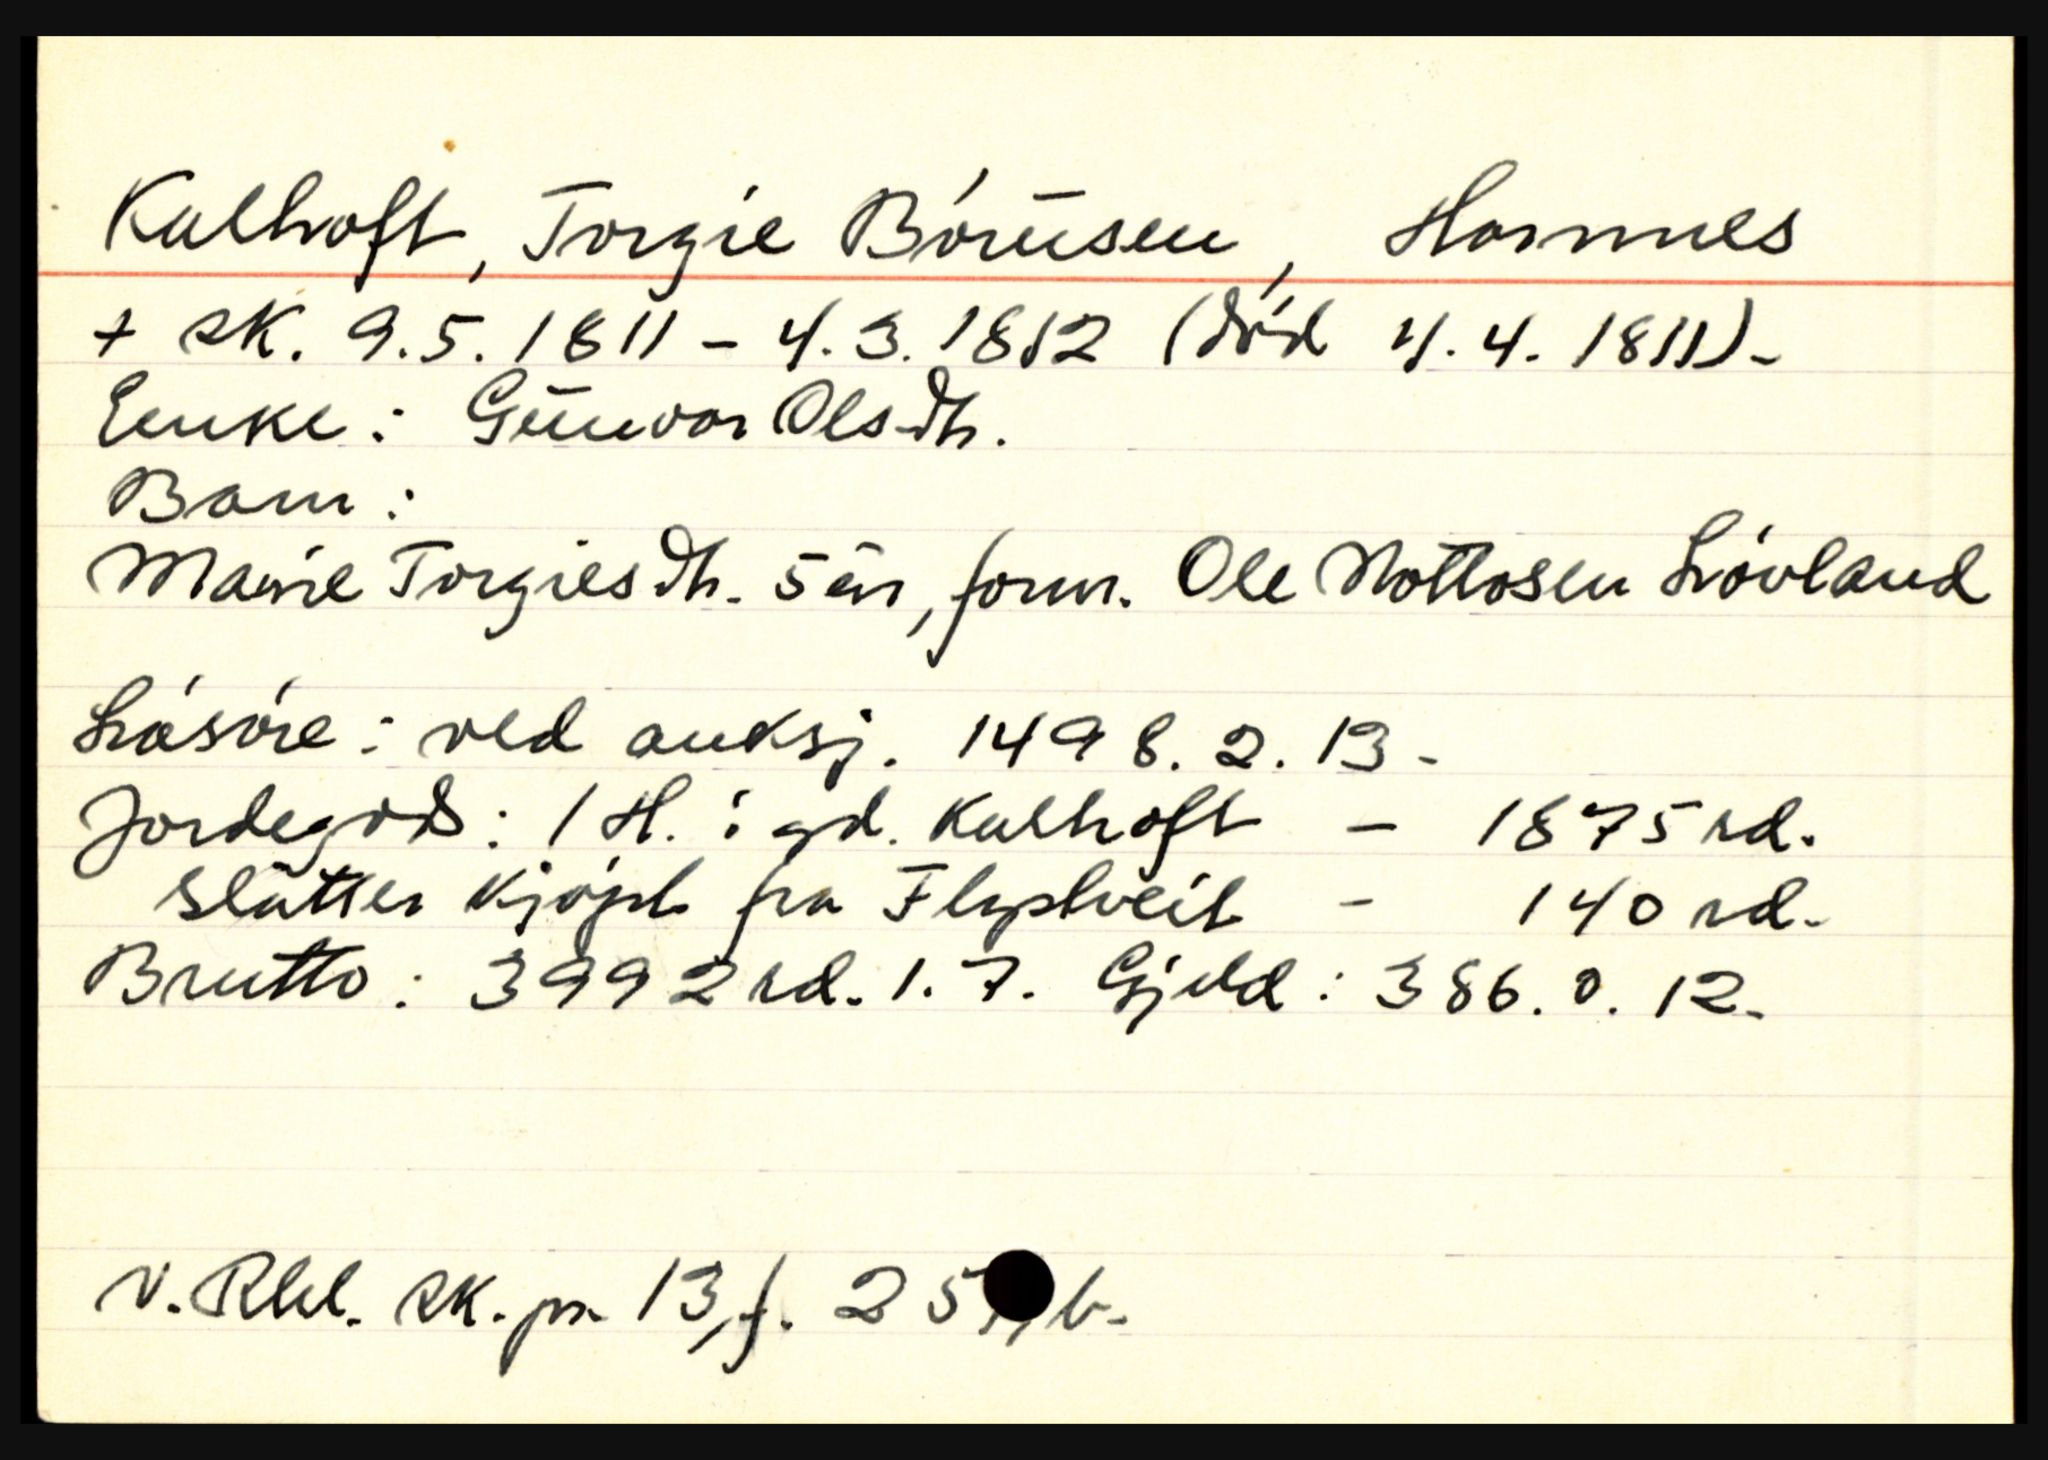 Kalhoft, Torgie Børusen, Hornnes
+ sk. 9.5.1811 - 4.3.1812 (død 4.4.1811).
Enke: Gunvor Olsdtr.
Barn:
Marie Torgiesdtr. 5 år, form. Ole Nottosen Løvland
Løsøre: ved auksj. 1498.2.13.
Jordegods: 1 H. i gd. Kalhoft - 1875 rd.
slåtter kjøpt fra Fleptveit - 140 rd.
Brutto: 3992 rd. 1.7. Gjeld: 386.0.12.
V. Rbl. sk. pr. 13, f. 25 , b.